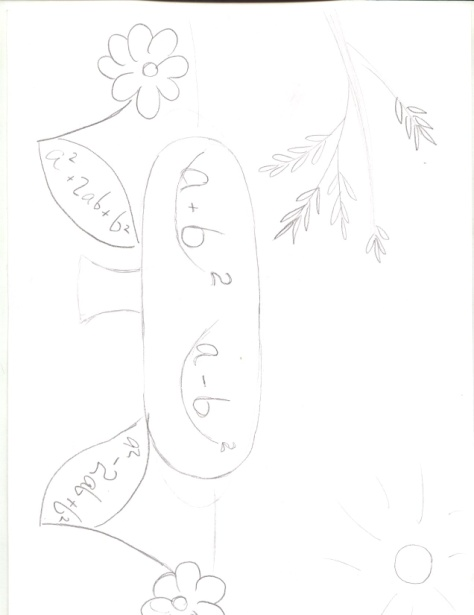 (a+b)² (a-b)²
a²+2ab+b²
a²-2ab+b²